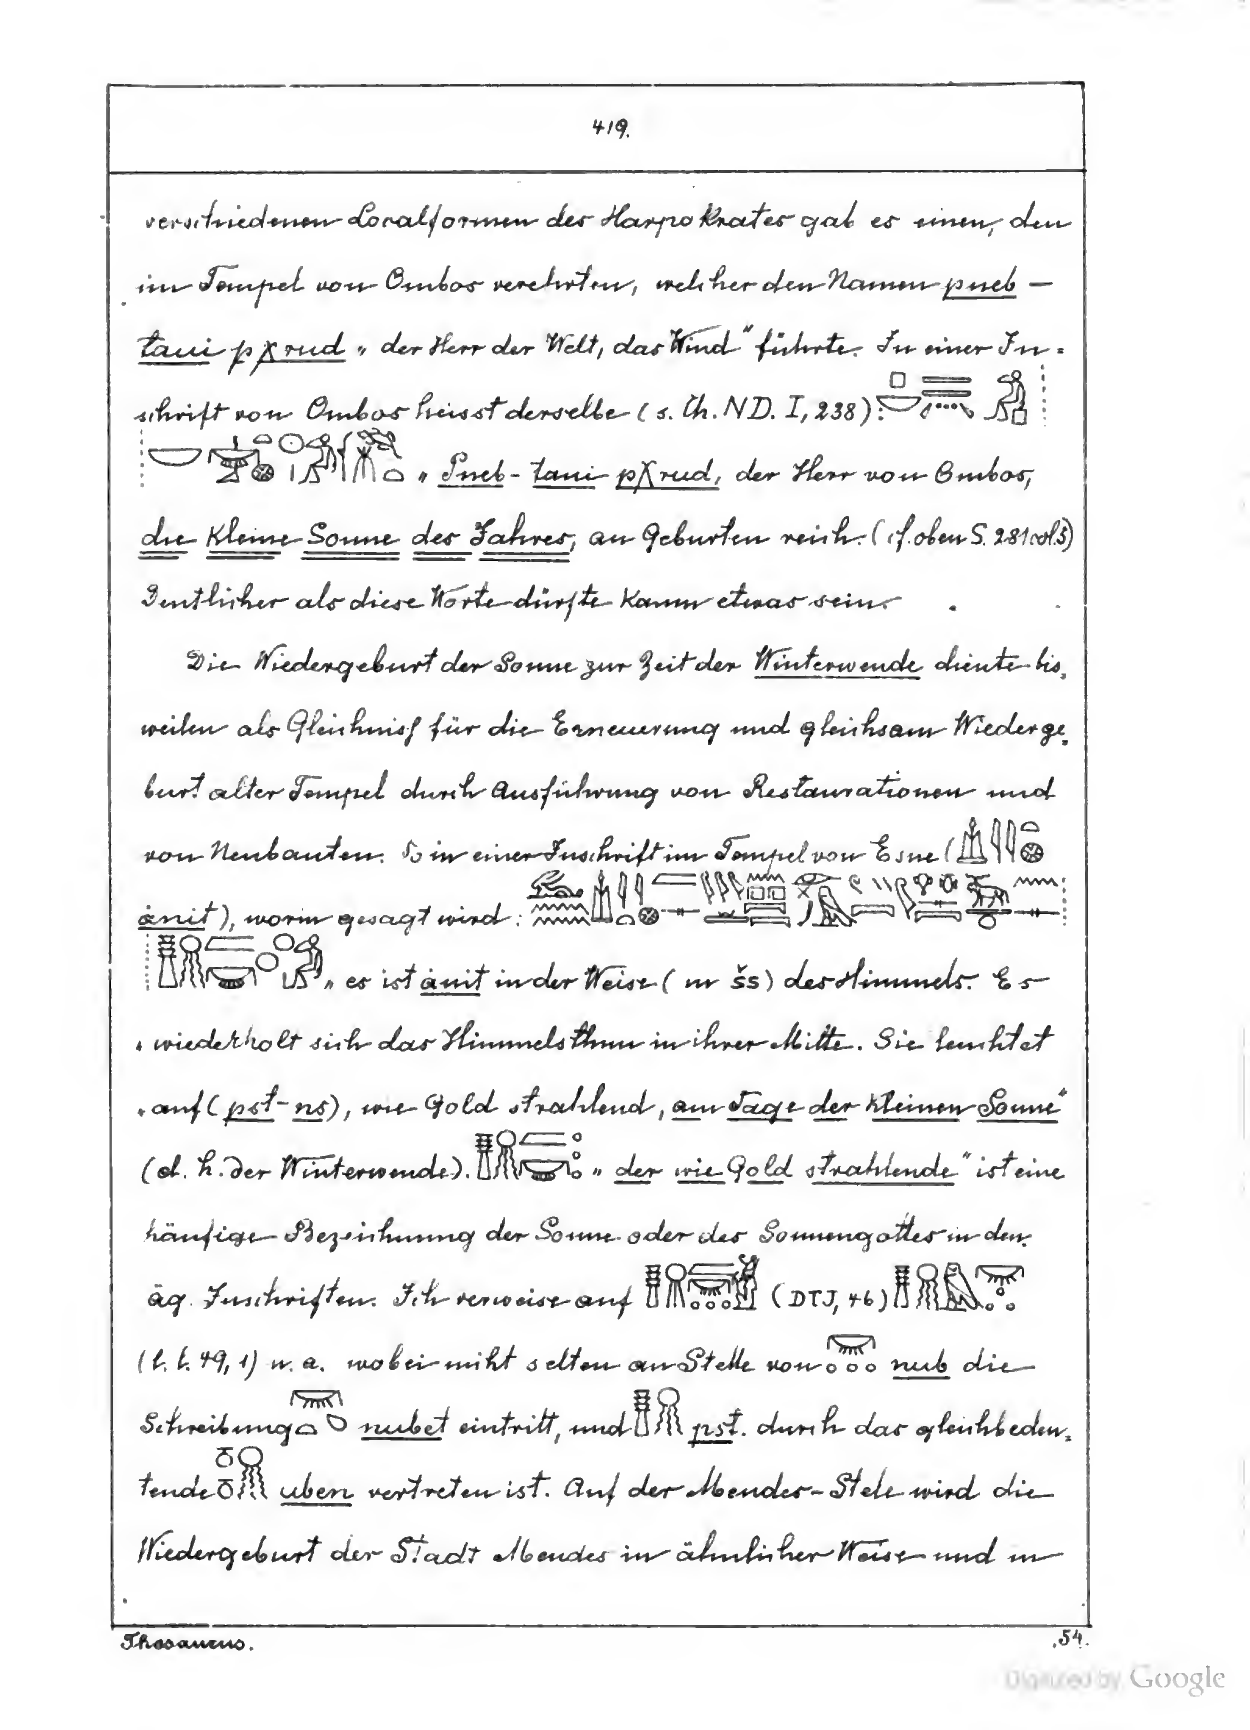 419.
verschiedenen Localformen des Harpokrates gab es einen, den
im Tempel von Ombos verehrten, welcher den Namen pneb-
taui pχrud „der Herr der Welt, das Kind“ führte. In einer In-
schrift von Ombos heisst derselbe (s. Th. ND. I, 238):
„Pneb-taui pχrud, der Herr von Ombos,
die Kleine Sonne des Jahres, an Geburten reich. (cf. oben S. 281 col. 5)
Deutlicher als diese Worte dürfte kaum etwas sein.
Die Wiedergeburt der Sonne zur Zeit der Winterwende diente bis-
weilen als Gleichniss für die Erneuerung und gleichsam Wiederge-
burt alter Tempel durch Ausführung von Restaurationen und
von Neubauten. So in einer Inschrift im Tempel von Esne (
ànit), worin gesagt wird:
„es ist ànit in der Weise (m šs) des Himmels. Es
„wiederholt sich das Himmelsthum in ihrer Mitte. Sie leuchtet
„auf (pst-ns), wie Gold strahlend, am Tage der Kleinen Sonne“
(d. h. der Winterwende). „der wie Gold strahlende“ ist eine
häufige Bezeichnung der Sonne oder des Sonnengottes in den
äg. Inschriften. Ich verweise auf (DTJ, 46)
(l. l. 49, 1) u. a. wobei nicht selten an Stelle von nub die
Schreibung nubet eintritt, und pst. durch das gleichbedeu-
tende uben vertreten ist. Auf der Mendes-Stele wird die
Wiedergeburt der Stadt Mendes in ähnlicher Weise und in
Thesaurus. 54.
Digitized by Google